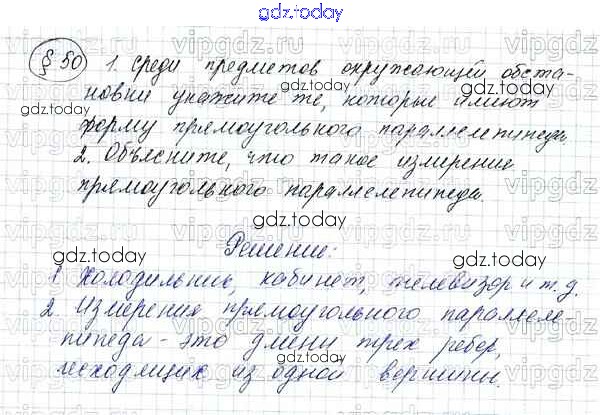 gdz.today
§ 50 1. Среди предметов окружающей обста-
новки укажите те, которые имеют
форму прямоугольного параллелепипеда.
2. Объясните, что такое измерение
прямоугольного параллелепипеда.
Решение:
1. Холодильник, кабинет, телевизор и т.д.
2. Измерения прямоугольного параллеле
пипеда - это длины трех ребер,
исходящих из одной вершины.